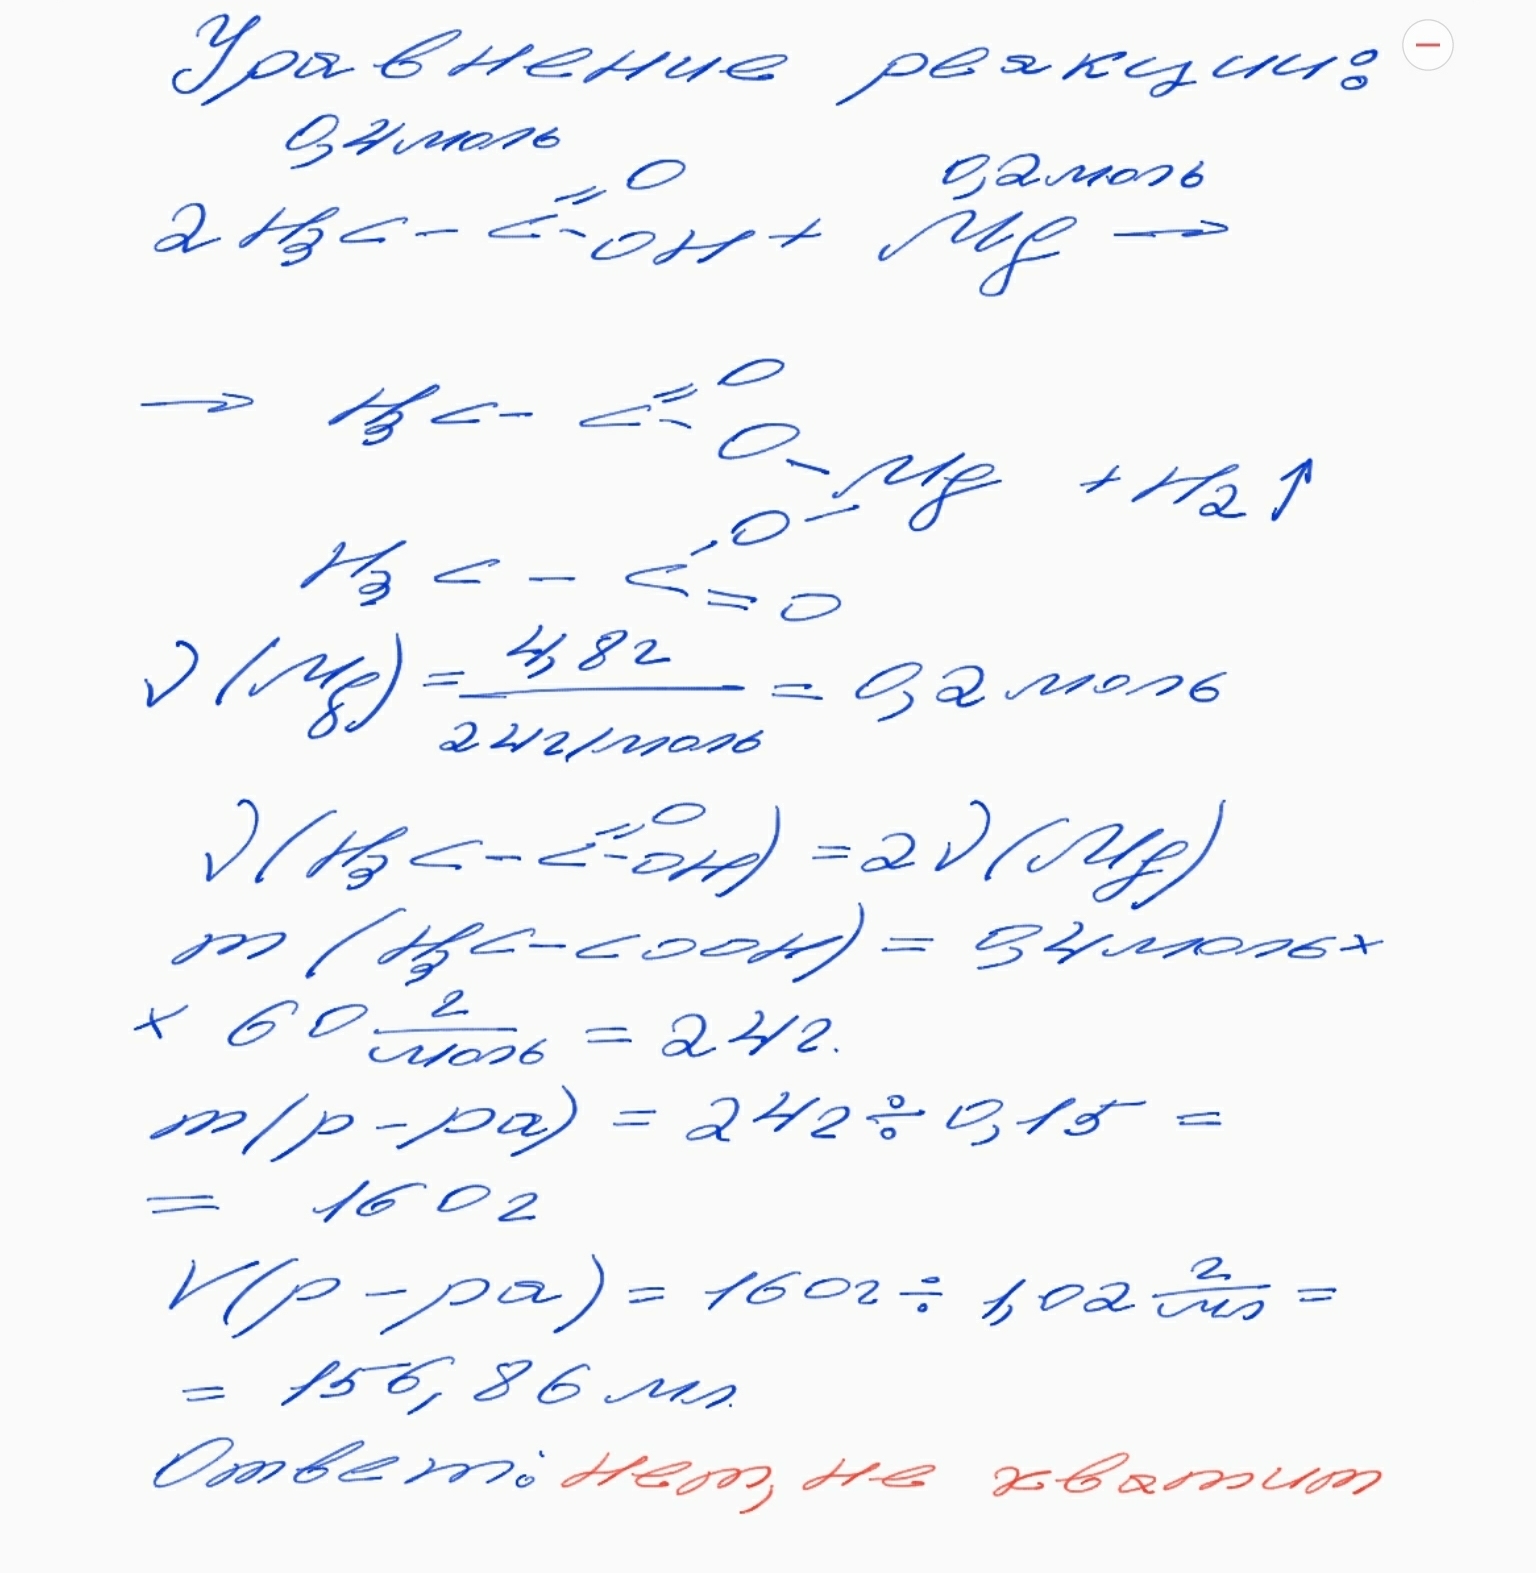 Уравнение реакции:
0,4моль
0,2моль
2H₃C-C=O-OH+ Mg→
→ H₃C-C=O
O-Mg +H₂↑
O
H₃C-C=O
ν(Mg)=4,8г/24г/моль=0,2моль
ν(H₃C-C=O-OH)=2ν(Mg)
m(H₃C-COOH)=0,4моль×
× 60 г/моль = 24г.
m(р-ра) = 24г÷0,15 =
= 160г
V(р-ра) = 160г÷1,02 г/мл =
= 156,86 мл.
Ответ: нет, не хватит